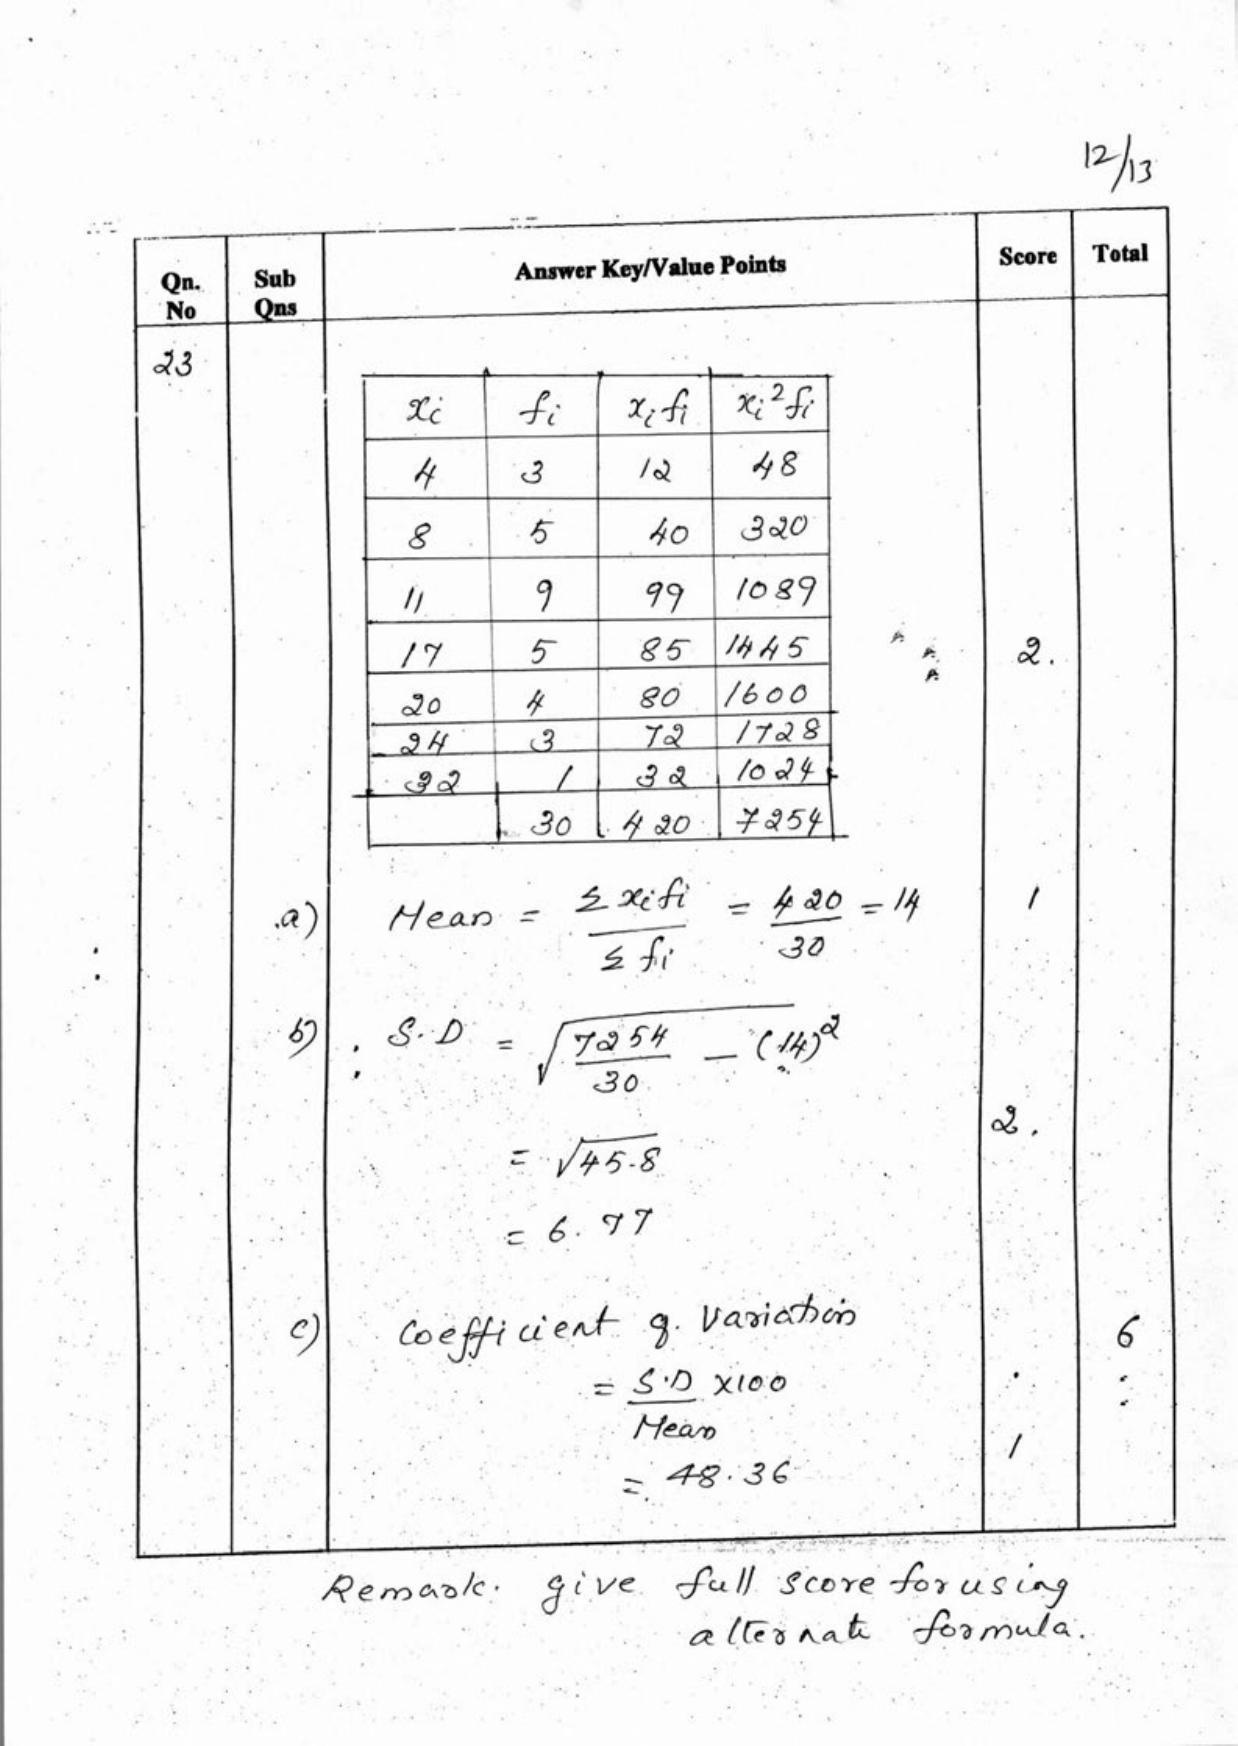 12/13
Qn. No | Sub Qns | Answer Key/Value Points | Score | Total
23
xi | fi | xi fi | xi² fi
4 | 3 | 12 | 48
8 | 5 | 40 | 320
11 | 9 | 99 | 1089
17 | 5 | 85 | 1445 | 2.
20 | 4 | 80 | 1600
24 | 3 | 72 | 1728
32 | 1 | 32 | 1024
30 | 420 | 7254
a) Mean = Σ xifi / Σ fi = 420/30 = 14 | 1
b) S.D = √(7254/30 – (14)²
2.
= √45.8
= 6.77
c) Coefficient of Variation | 6
= S.D/Mean ×100
= 48.36 | 1
Remark. give full score for using
alternate formula.